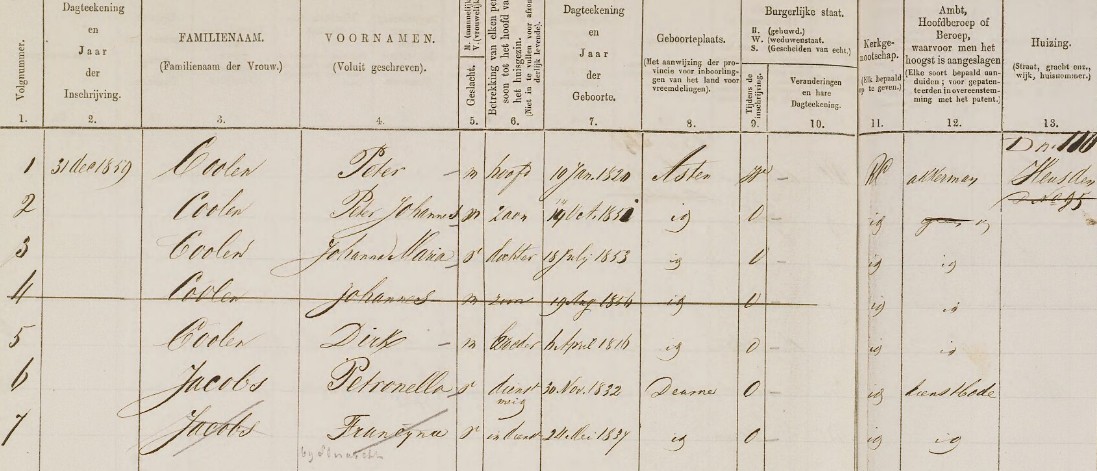 Volgnummer.
Dagteekening
en
Jaar
der
Inschrijving.
FAMILIENAAM.
(Familienaam der Vrouw.)
VOORNAMEN.
(Voluit geschreven).
Geslacht.
M. (mannelijk)
V. (vrouwelijk)
Betrekking van elken per-
soon tot het hoofd va
het huisgezin.
(Niet in te vullen voor afzon-
derlijk levende).
Dagteekening
en
Jaar
der
Geboorte.
Geboorteplaats.
(Met aanwijzing der pro-
vincie voor inboorlin-
gen van het land voor
vreemdelingen).
Burgerlijke staat.
H. (gehuwd.)
W. (weduwenstaat.
S. (Gescheiden van echt.)
Tijdens de
inschrijving.
Veranderingen
en hare
Dagteekening.
Kerkge-
nootschap.
(Elk bepaald
op te geven.)
Ambt,
Hoofdberoep of
Beroep,
waarvoor men het
hoogst is aangeslagen
(Elke soort bepaald aan-
duiden; voor gepaten-
teerden in overeenstem-
ming met het patent.)
Huizing.
(Straat, gracht enz.,
wijk, huisnummer.)
1. 2. 3. 4. 5. 6. 7. 8. 9. 10. 11. 12. 13.
D no. 110
1 31 dec 1859 Coolen Peter m hoofd 10 Jan. 1820 Asten W RC akkerman Heusden
2 Coolen Peter Johannes m zoon Oct. ig 0 ig ig No 95
3 Coolen Johanna Maria v dochter 18 July 1853 ig 0 ig ig
4 Coolen Johannes m zoon 19 Aug 1856 ig 0 ig ig
5 Coolen Dirk m April 1816 ig 0 ig ig
6 Jacobs Petronella v dienst 30 Nov. 1832 Deurne 0 ig dienstbode
meid
7 Jacobs Francyna v 24 Mei 1837 ig 0 ig ig